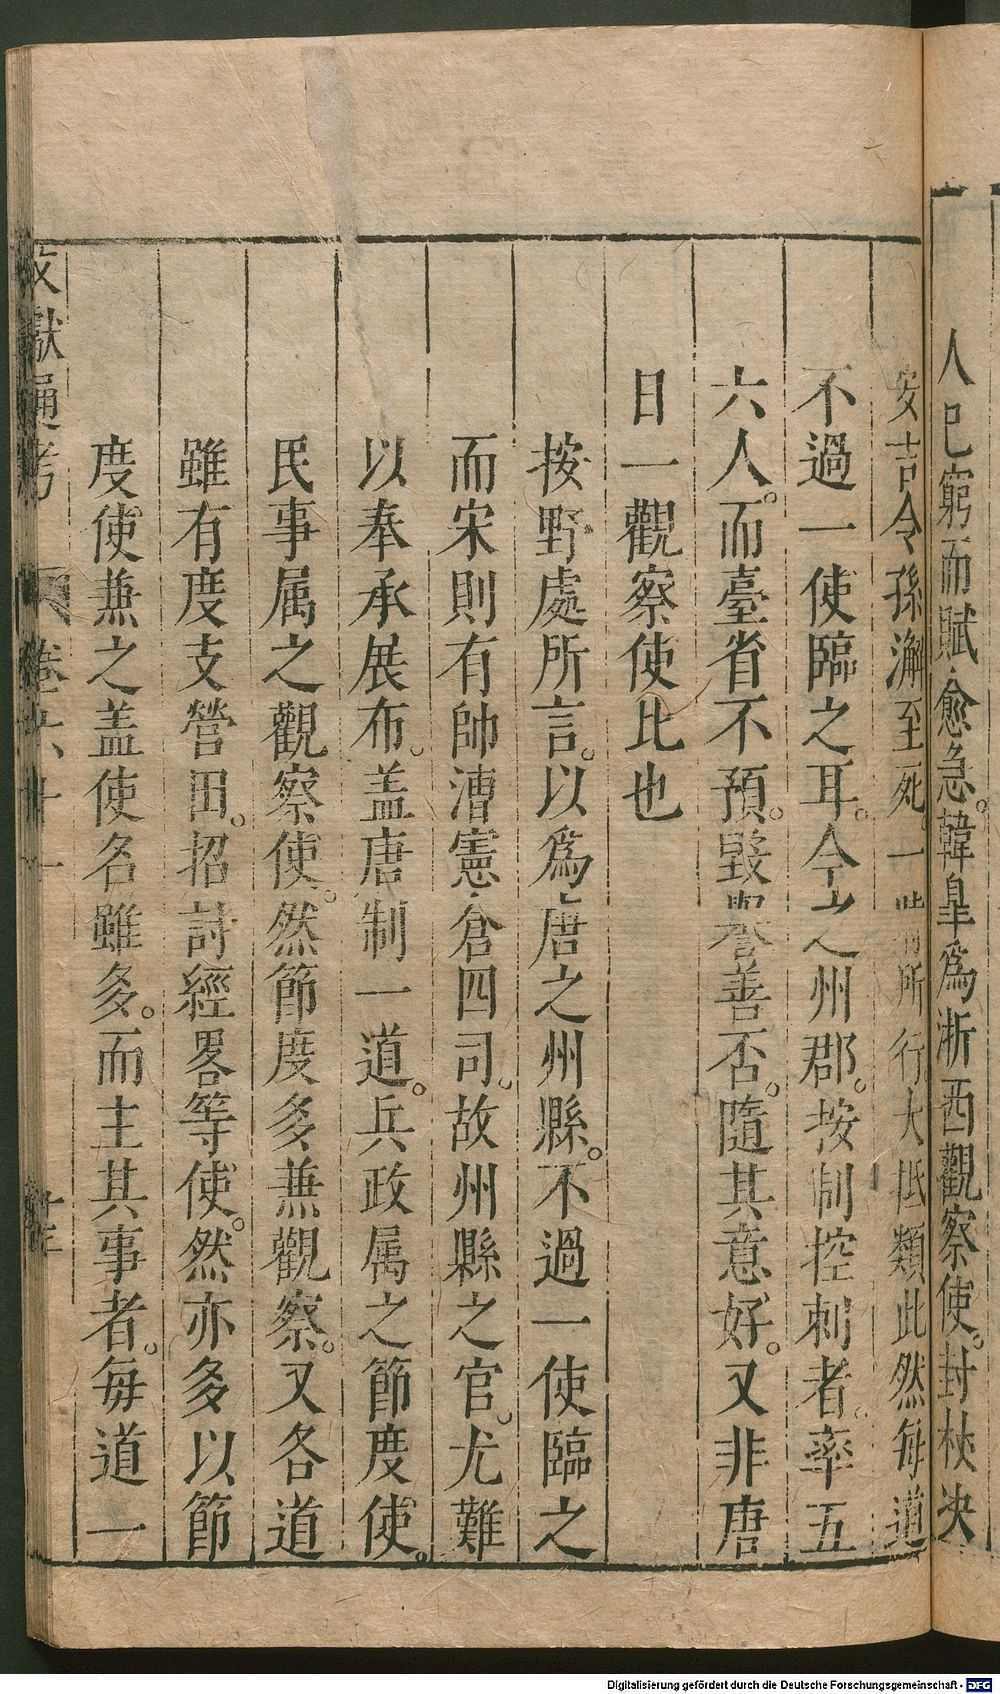 人巳窮而賦愈急。韓臯爲浙西觀察使。封杖决
安吉令孫澥至死。一時所行。大抵類此然每道
不過一使臨之耳。今之州郡。按制控刺者。率五
六人。而臺省不預。毀譽善否。隨其意好。又非唐
日一觀察使比也
按野處所言。以爲唐之州縣。不過一使臨之
而宋則有帥漕憲倉四司。故州縣之官。尤難
以奉承展布。盖唐制一道。兵政属之節度使。
民事属之觀察使。然節度多兼觀察。又各道
雖有度支營田。招討經畧等使。然亦多以節
度使兼之盖使名雖多。而主其事者。每道一
文獻通考 卷六十一
Digitalisierung gefördert durch die Deutsche Forschungsgemeinschaft - DFG